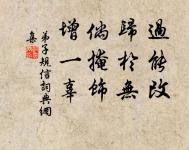 過能改
歸於無
倘掩飾
增一辜
弟子規信詞典網
集